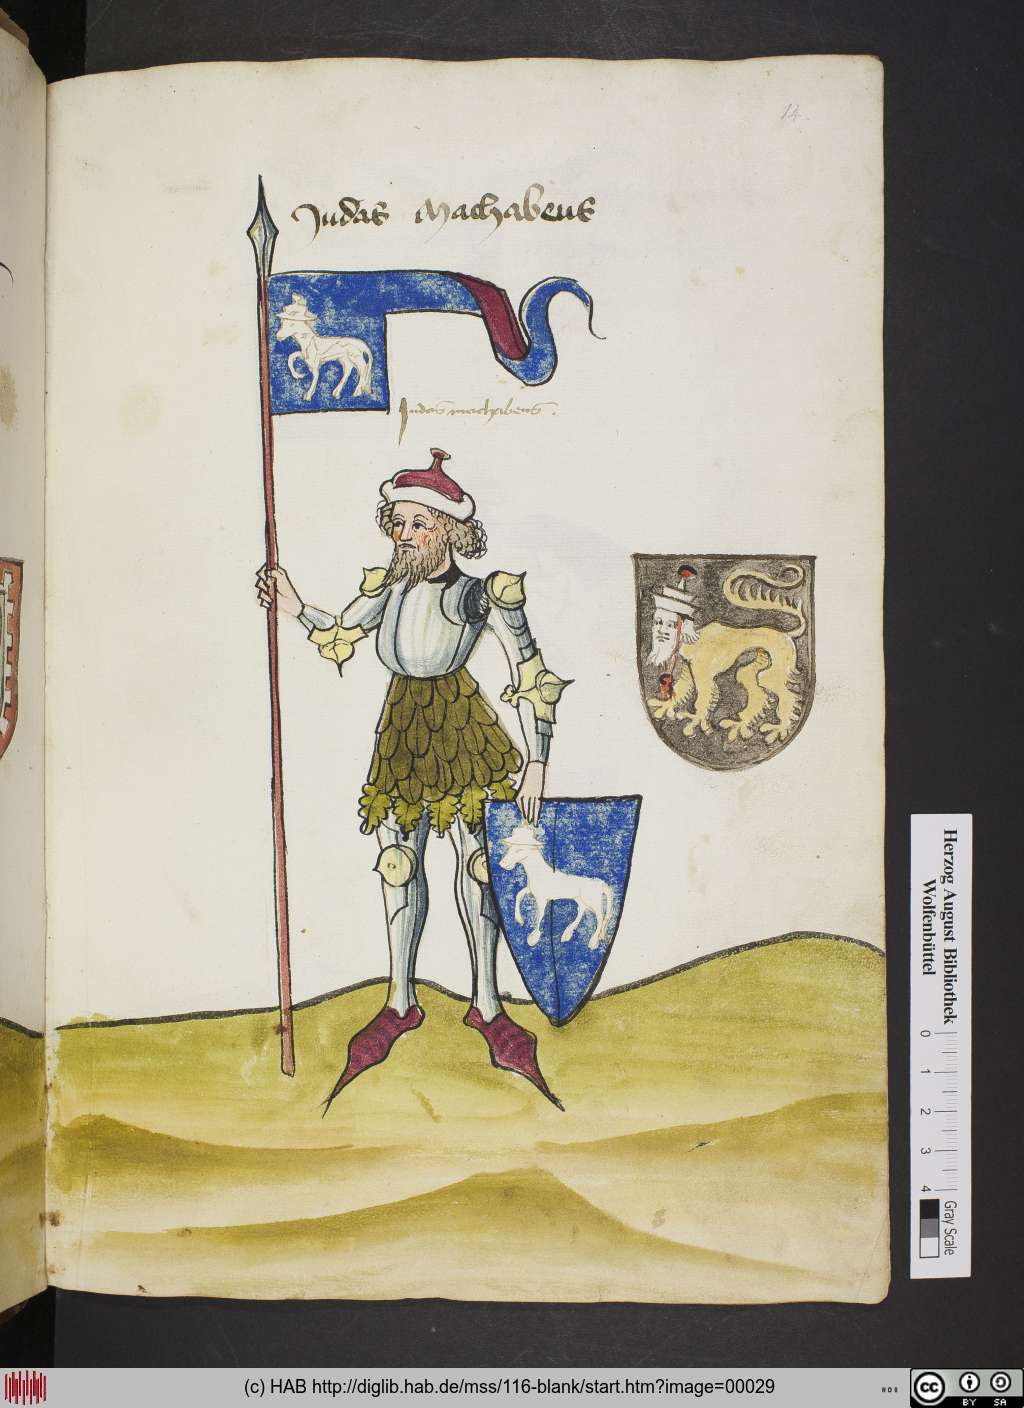 14.
Judas Machabeus
Judas machabeus.
Herzog August Bibliothek
Wolfenbüttel
0 1 2 3 4
Gray Scale
(c) HAB http://diglib.hab.de/mss/116-blank/start.htm?image=00029
cc BY SA